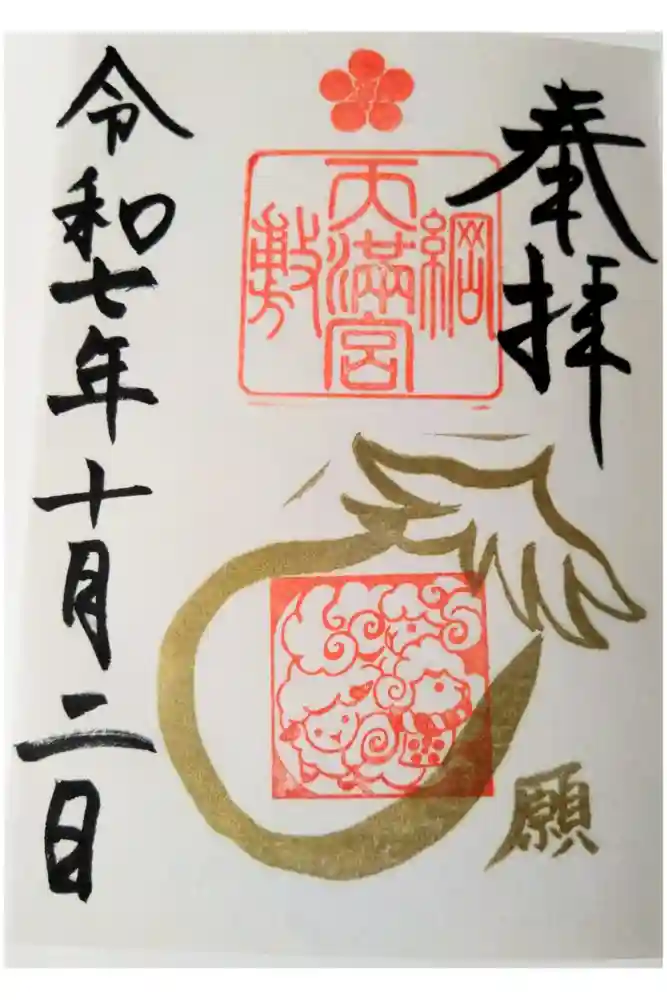 奉拝
綱
天満宮
敷
願
令和七年十月二日